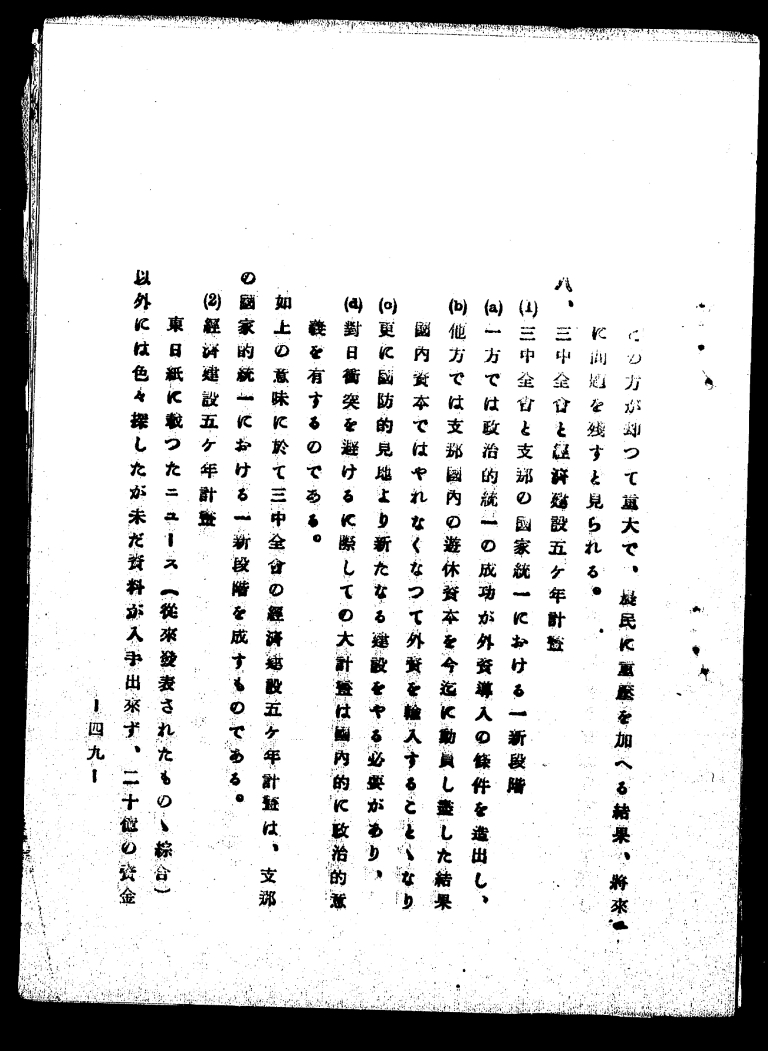 この方が却つて重大で、農民に重壓を加へる結果、將來
に問題を残すと見られる。
八、三中全會と經濟建設五ケ年計畫
(1)三中全會と支那の國家統一における一新段階
(a)一方では政治的統一の成功が外資導入の條件を造出し、
(b)他方では支那國内の遊休資本を今迄に動員し盡した結果
國内資本ではやれなくなつて外資を輸入することゝなり
(c)更に國防的見地より新たなる建設をやる必要があり、
(d)對日衝突を避けるに際しての大計畫は國内的に政治的意
義を有するのである。
如上の意味に於て三中全會の經濟建設五ケ年計畫は、支那
の國家的統一における一新段階を成すものである。
(2)經濟建設五ケ年計畫
東日紙に載つたニュース(從來發表されたものゝ綜合)
以外には色々探したが未だ資料が入手出來ず、二十億の資金
―四九―